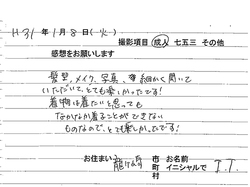 H31年1月8日(火)
撮影項目 成人 七五三 その他
感想をお願いします
髪型、メイク、写真、細かく聞いて
いただいて、とても楽しかったです!
着物は着たいと思っても
なかなか着ることができない
ものなので、とても楽しかったです!
お住まい 龍ヶ崎 市町村 お名前 イニシャルで I.T.